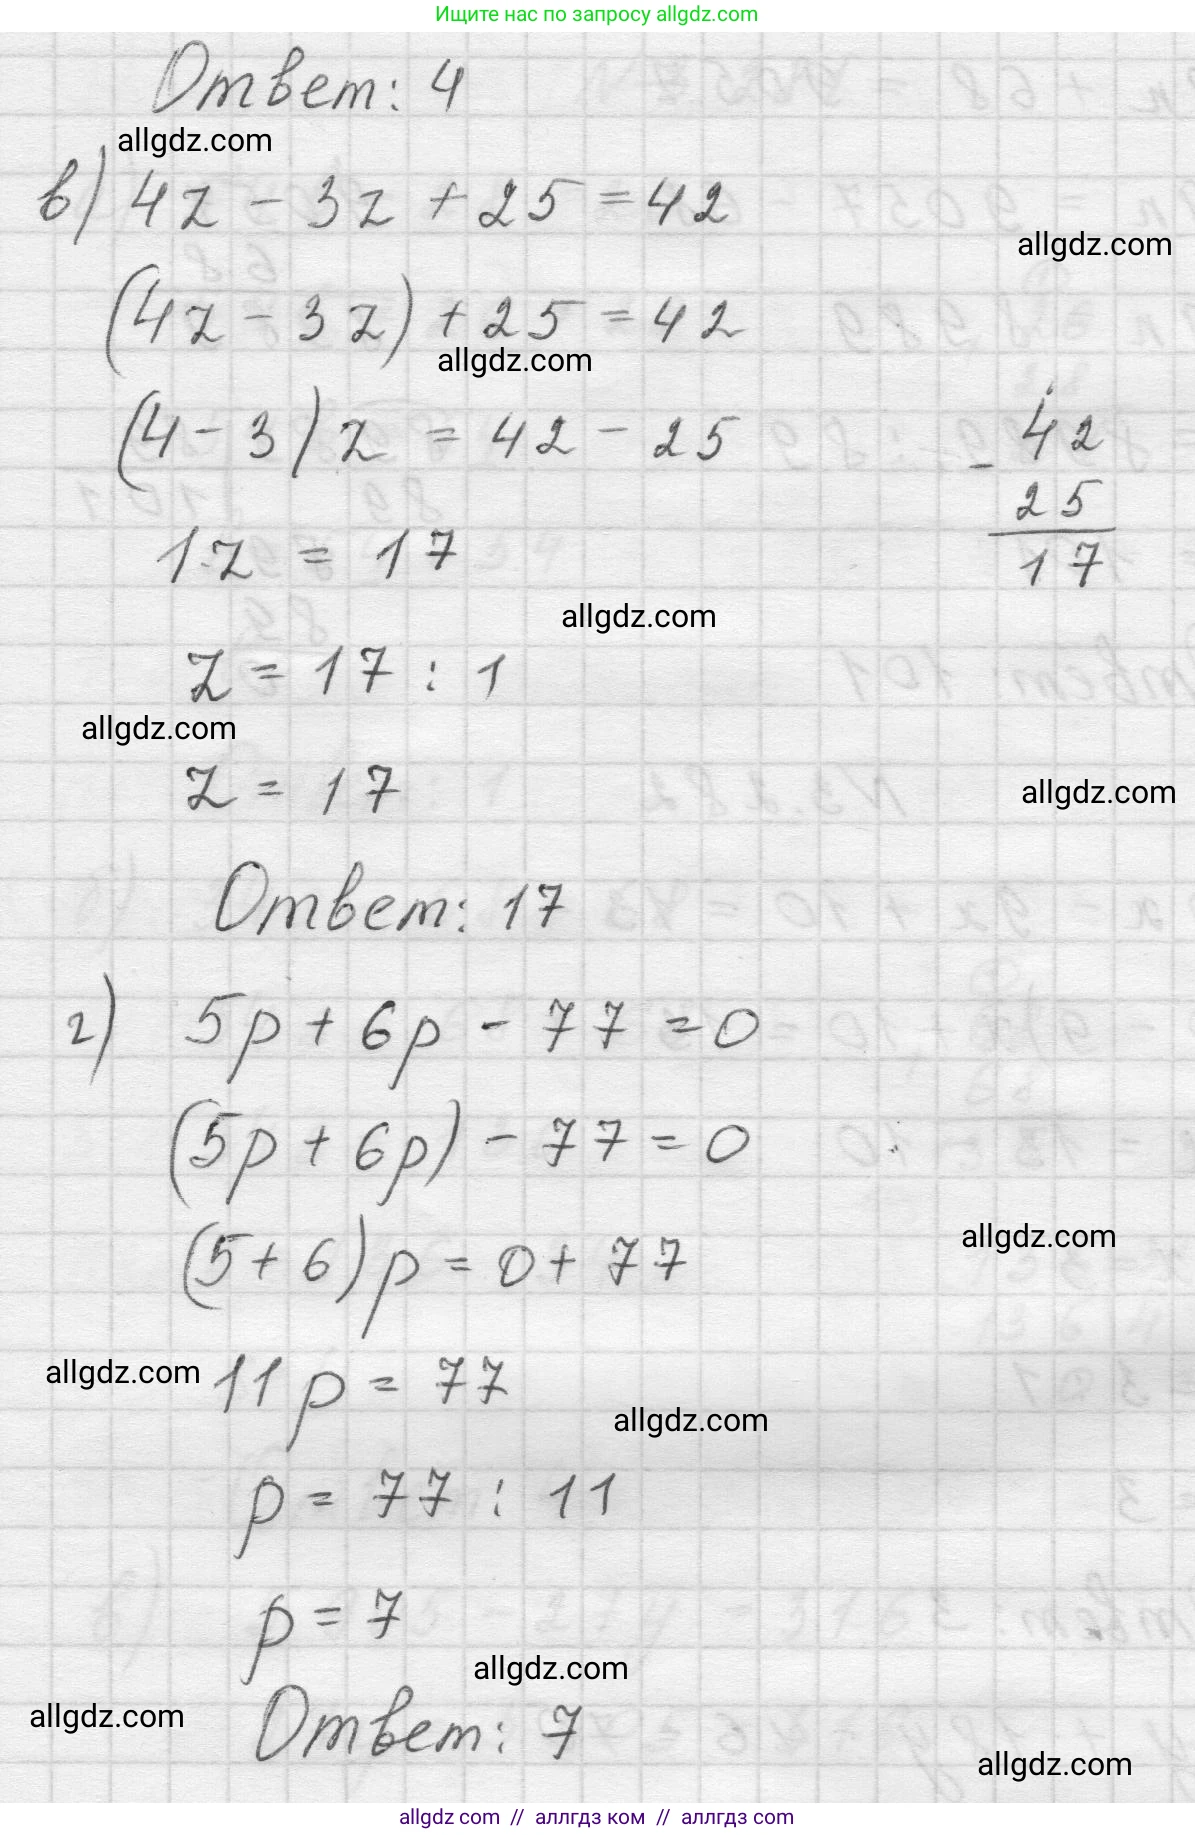 Ищите нас по запросу allgdz.com
Ответ: 4
allgdz.com
в) 4z - 3z + 25 = 42
allgdz.com
(4z - 3z) + 25 = 42
allgdz.com
(4 - 3) z = 42 - 25
- 42
25
17
1z = 17
allgdz.com
z = 17 : 1
allgdz.com
z = 17
allgdz.com
Ответ: 17
г) 5p + 6p - 77 = 0
(5p + 6p) - 77 = 0
allgdz.com
(5 + 6) p = 0 + 77
allgdz.com
11p = 77
allgdz.com
p = 77 : 11
p = 7
allgdz.com
allgdz.com
Ответ: 7
allgdz.com
allgdz.com // аллгдз ком // аллгдз com